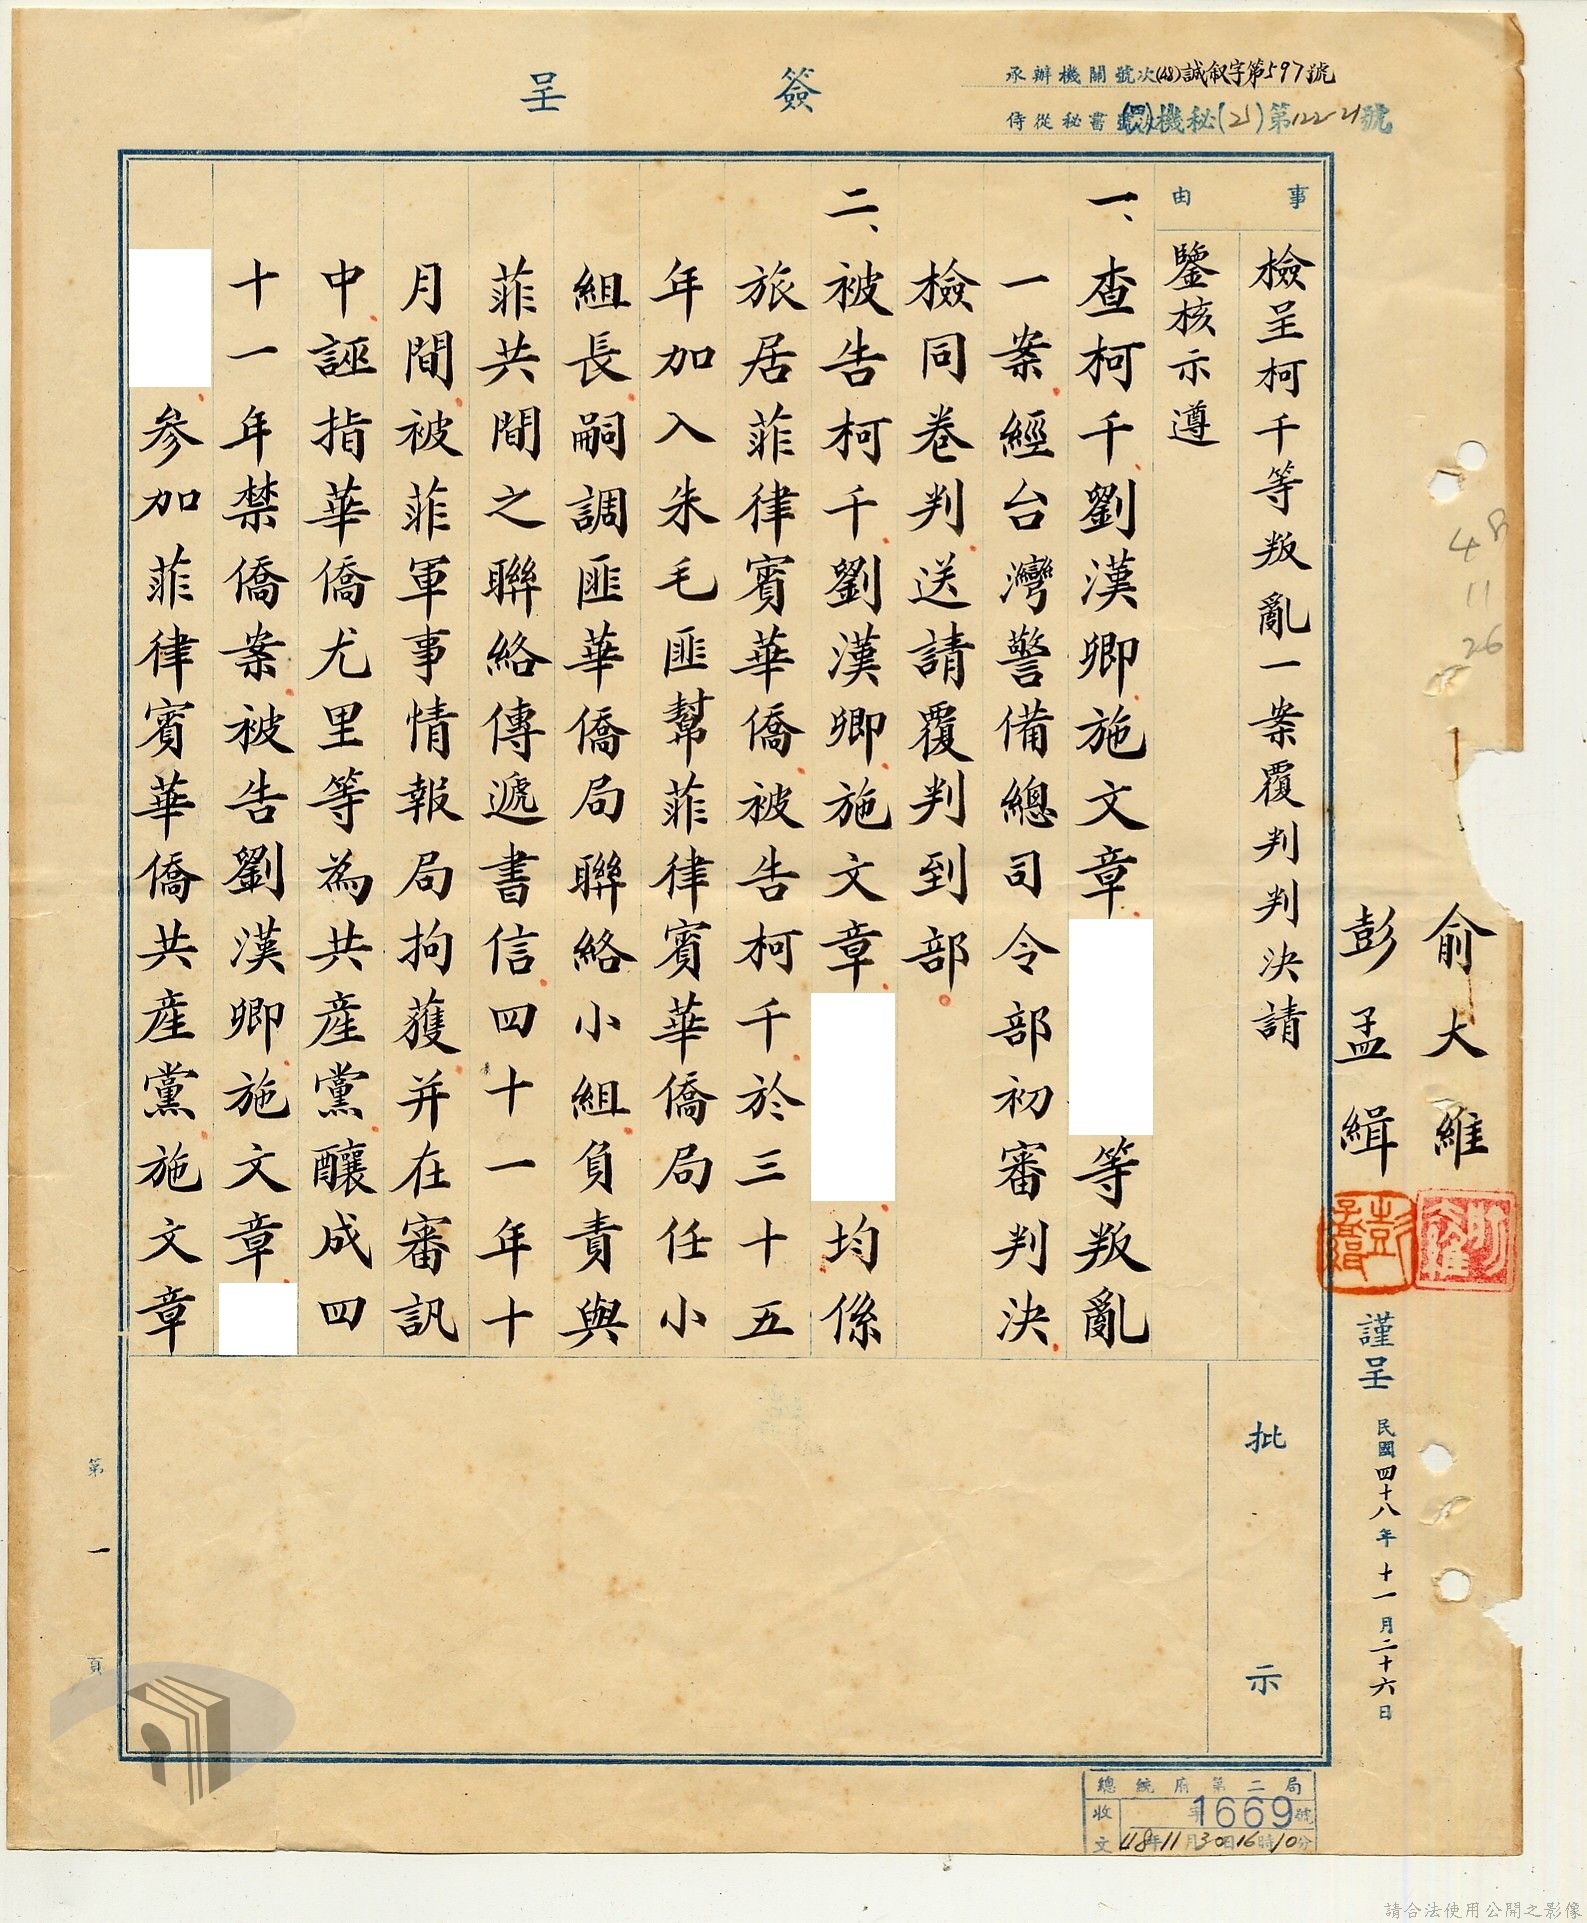 簽呈
承辦機關號次(48)誠叙字第597號
侍從秘書號次機秘(21)第122-21號
事由
檢呈柯千等叛亂一案覆判判決請
鑒核示遵
一、查柯千劉漢卿施文章
等叛亂
一案經台灣警備總司令部初審判決
檢同卷判送請覆判到部
二、被告柯千劉漢卿施文章
均係
旅居菲律賓華僑被告柯千於三十五
年加入朱毛匪幫菲律賓華僑局任小
組長嗣調匪華僑局聯絡小組負責與
菲共間之聯絡傳遞書信四十一年十
月間被菲軍事情報局拘獲并在審訊
中誣指華僑尤里等為共產黨釀成四
十一年禁僑案被告劉漢卿施文章
參加菲律賓華僑共產黨施文章
批示
俞大維
彭孟緝
謹呈
民國四十八年十一月二十六日
48
11
26
第一頁
總統府第二局
收文
1669號
48年11月30日16時10分
請合法使用公開之影像